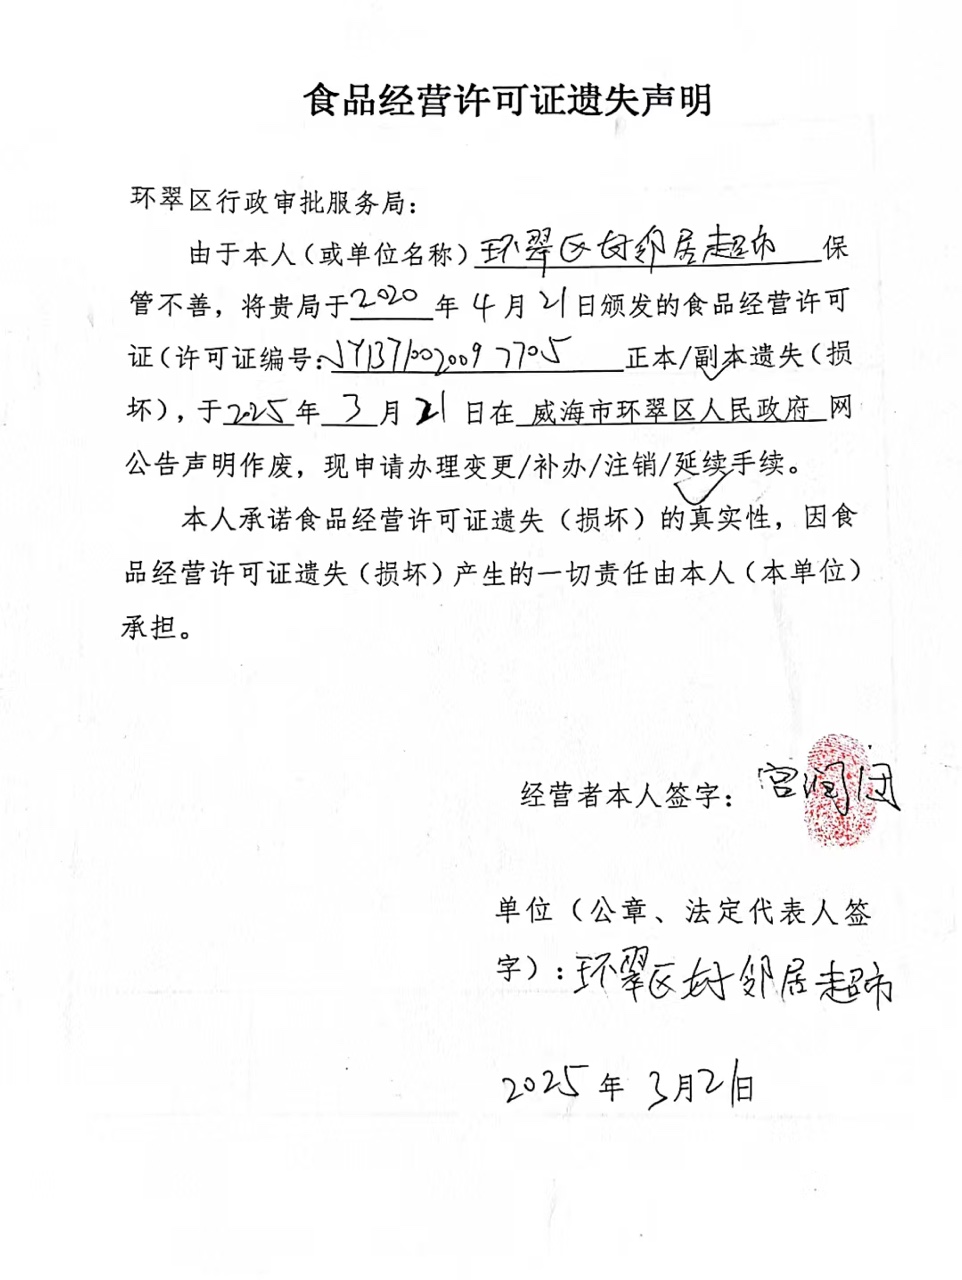 食品经营许可证遗失声明
环翠区行政审批服务局：
由于本人（或单位名称）环翠区好邻居超市 保
管不善，将贵局于2020 年 4 月 21 日颁发的食品经营许可
证（许可证编号：JY13710020097705 正本/副本遗失（损
坏），于2025年 3 月 21 日在 威海市环翠区人民政府 网
公告声明作废，现申请办理变更/补办/注销/延续手续。
本人承诺食品经营许可证遗失（损坏）的真实性，因食
品经营许可证遗失（损坏）产生的一切责任由本人（本单位）
承担。
经营者本人签字：宫润
单位（公章、法定代表人签
字）：环翠区好邻居超市
2025 年 3月21日